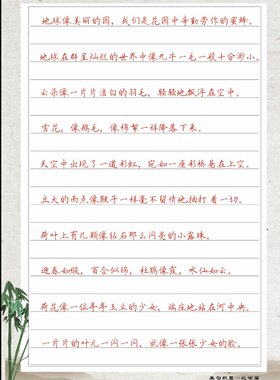 地球像美丽的园，我们是花园中辛勤劳作的蜜蜂。
地球在群星灿烂的世界中像九牛一毛一般十分渺小。
云朵像一片片洁白的羽毛，轻轻地飘浮在空中。
雪花，像鹅毛，像棉絮一样降落下来。
天空中出现了一道彩虹，宛如一座彩桥悬在上空。
豆大的雨点像鞭子一样毫不留情地抽打着一切。
荷叶上有几颗像钻石那么闪亮的小露珠。
迎春如报，百合似锦，杜鹃像霞，水仙如云。
荷花像一位亭亭玉立的少女，端庄地站在河中央。
一片片的叶儿一闪一闪，就像一张张少女的脸。